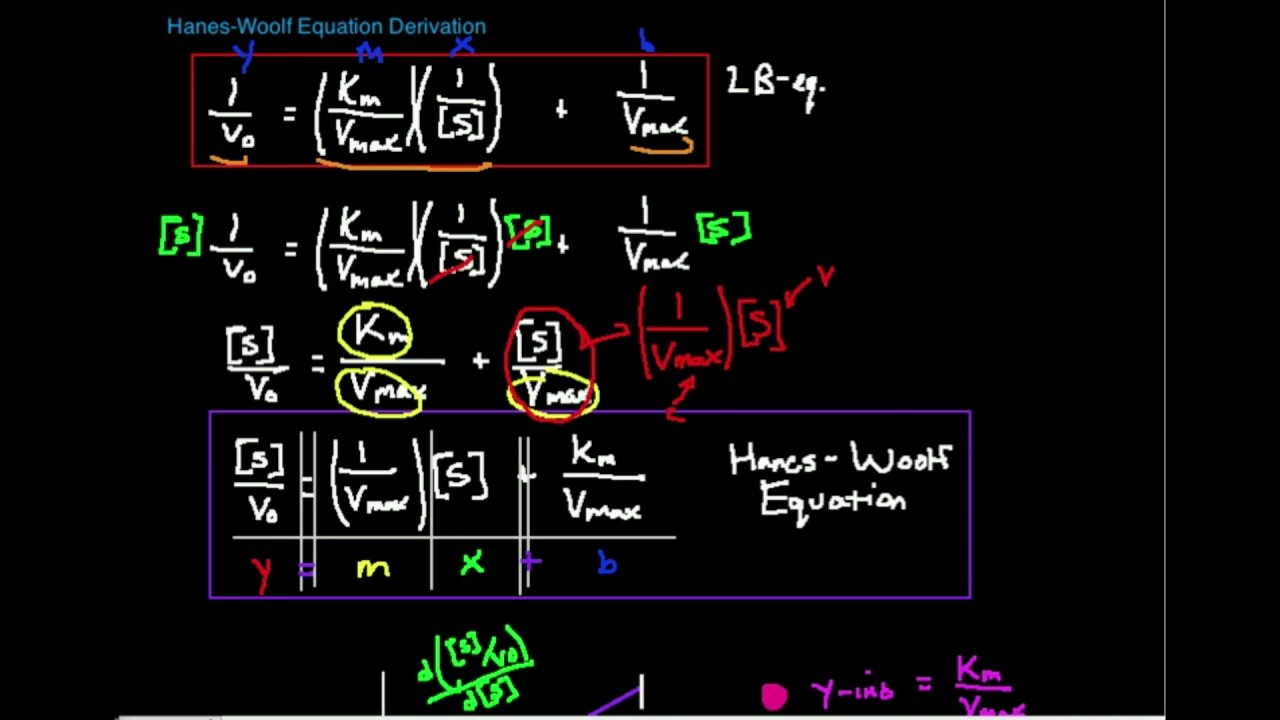 Hanes-Woolf Equation Derivation
y m x b
1/V₀ = (Km/Vmax)(1/[S]) + 1/Vmax LB-eq.
[S] 1/V₀ = (Km/Vmax)(1/[S]) [S] + 1/Vmax [S]
[S]/V₀ = Km/Vmax + [S]/Vmax → (1/Vmax)[S] ← V
C
[S]/V₀ = (1/Vmax)[S] + Km/Vmax Hanes-Woolf
Equation
y = m x + b
d([S]/V0)/d[S]
y-int = Km/Vmax